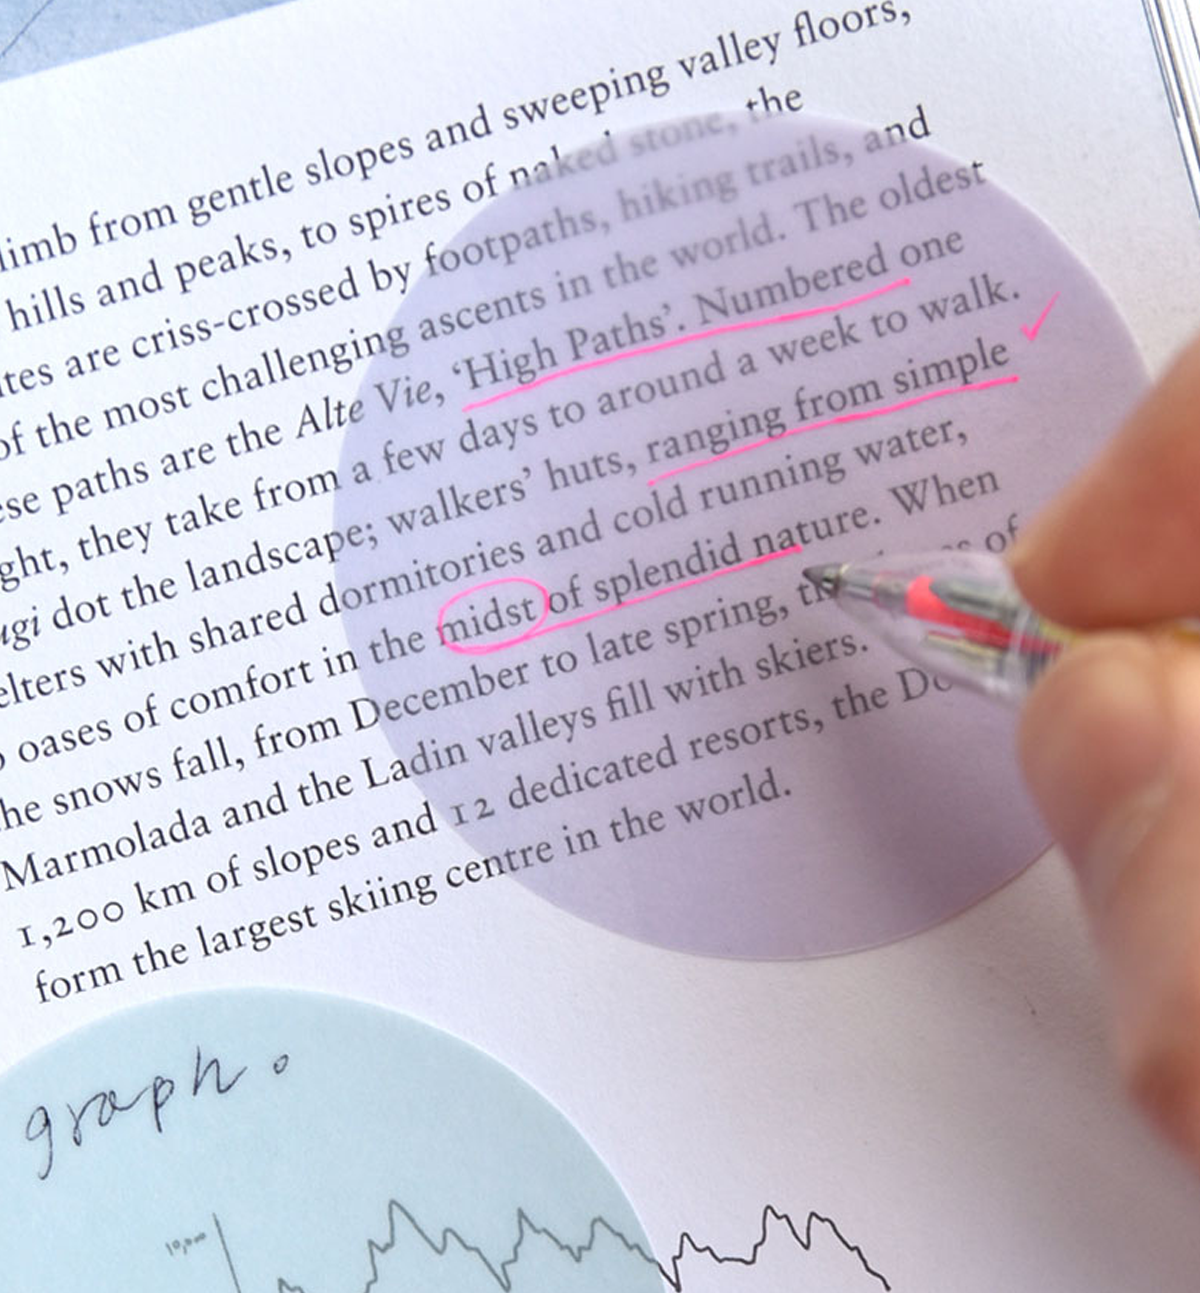 limb from gentle slopes and sweeping valley floors,
hills and peaks, to spires of naked stone, the
ites are criss-crossed by footpaths, hiking trails, and
of the most challenging ascents in the world. The oldest
ese paths are the Alte Vie, ‘High Paths’. Numbered one
ght, they take from a few days to around a week to walk.
ugi dot the landscape; walkers’ huts, ranging from simple
elters with shared dormitories and cold running water,
oases of comfort in the midst of splendid nature. When
he snows fall, from December to late spring, of
Marmolada and the Ladin valleys fill with skiers.
1,200 km of slopes and 12 dedicated resorts, the Do
form the largest skiing centre in the world.
graph.
10,000